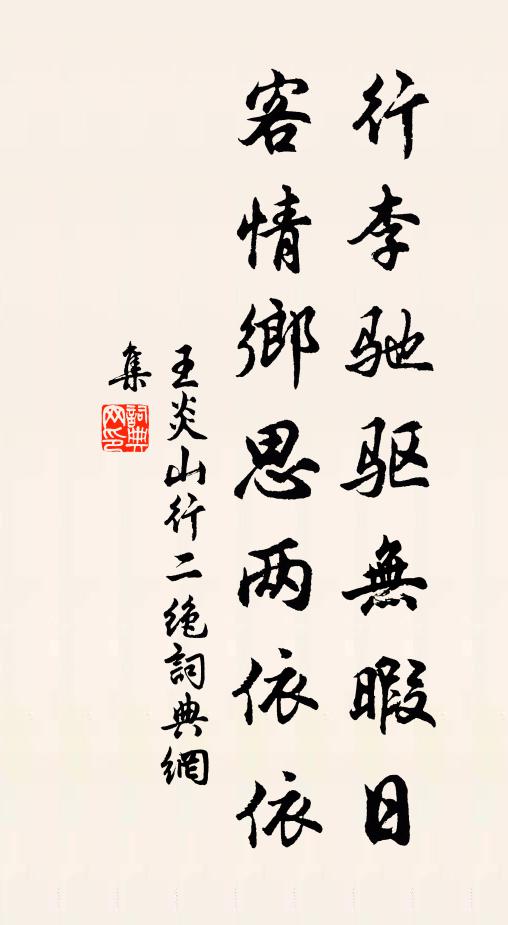 行李驰驱無暇日
客情鄉思两依依
王炎山行二绝詞典網
集
詞典
网印